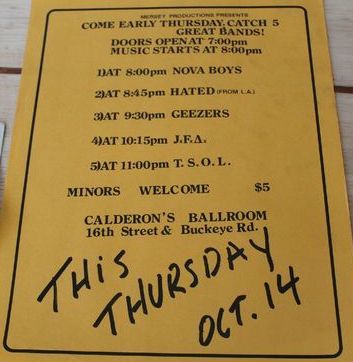 MERSEY PRODUCTIONS PRESENTS
COME EARLY THURSDAY, CATCH 5
GREAT BANDS!
DOORS OPEN AT 7:00pm
MUSIC STARTS AT 8:00pm
1)AT 8:00pm NOVA BOYS
2)AT 8:45pm HATED (FROM L.A.)
3)AT 9:30pm GEEZERS
4)AT 10:15pm J.F.A.
5)AT 11:00pm T.S.O.L.
MINORS WELCOME $5
CALDERON'S BALLROOM
16th Street & Buckeye Rd.
THIS
THURSDAY
OCT. 14